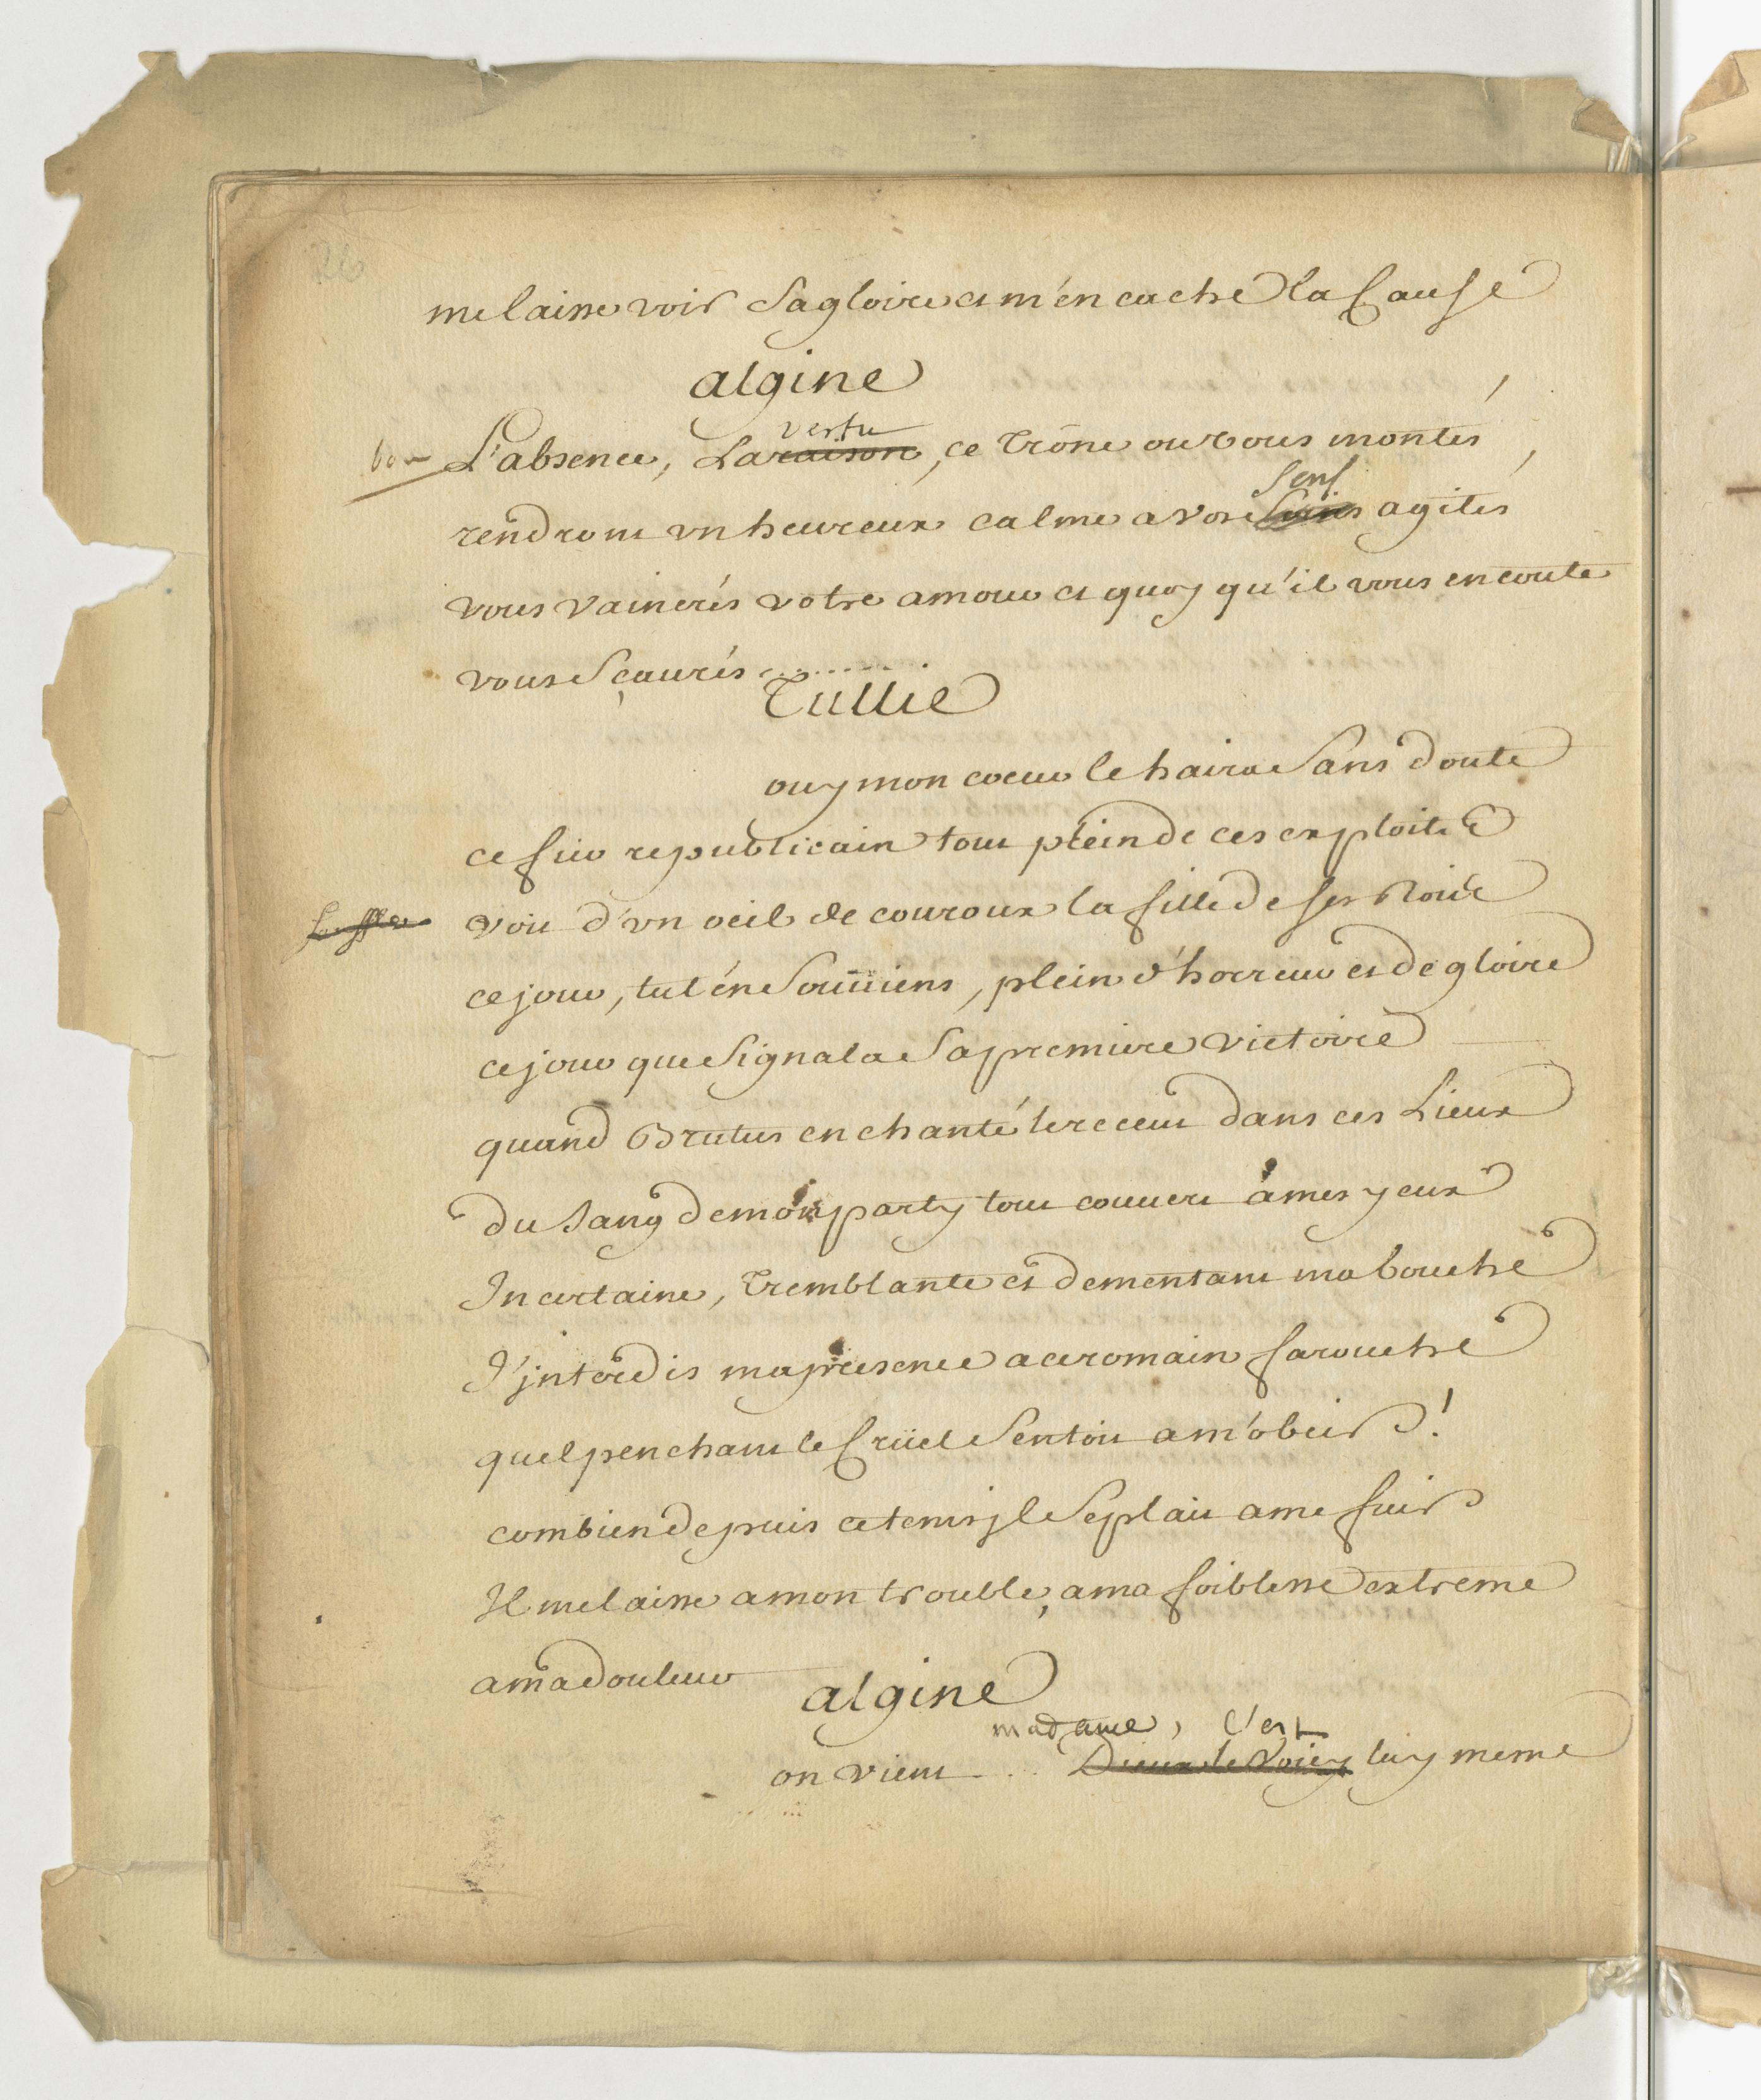 26
me laisse voir sa gloire et m'en cache la Cause
algine
vertu
bon L'absence, La raison, ce Trône ou vous montés,
sens
rendront vn heureux calme a vos soins agités
vous vaincrés votre amour et quoy qu'il vous en coute
vous sçaurés ..........
Tullie
ouy mon coeur le haira sans doute
ce fier republicain tout plein de ces exploits
voit d'vn oeil de couroux la fille de ses Rois
ce jour, tu t'en souuiens, plein d'horreur et de gloire
ce jour que signala sa premiere victoire
quand Brutus enchanté le receut dans ces Lieux
du sang de mon party tout couuert à mes yeux
Incertaine, Tremblante et dementant ma bouche
J'jnterdis ma presence a ce romain farouche
quel penchant le Crüel sentoit a m'obeir !
combien depuis ce tems jl se plait a me fuir
Il me laisse a mon trouble, a ma foiblesse extreme
a ma douleur
algine
madame, C'est
on vient ... Dieux le Voicy luy meme